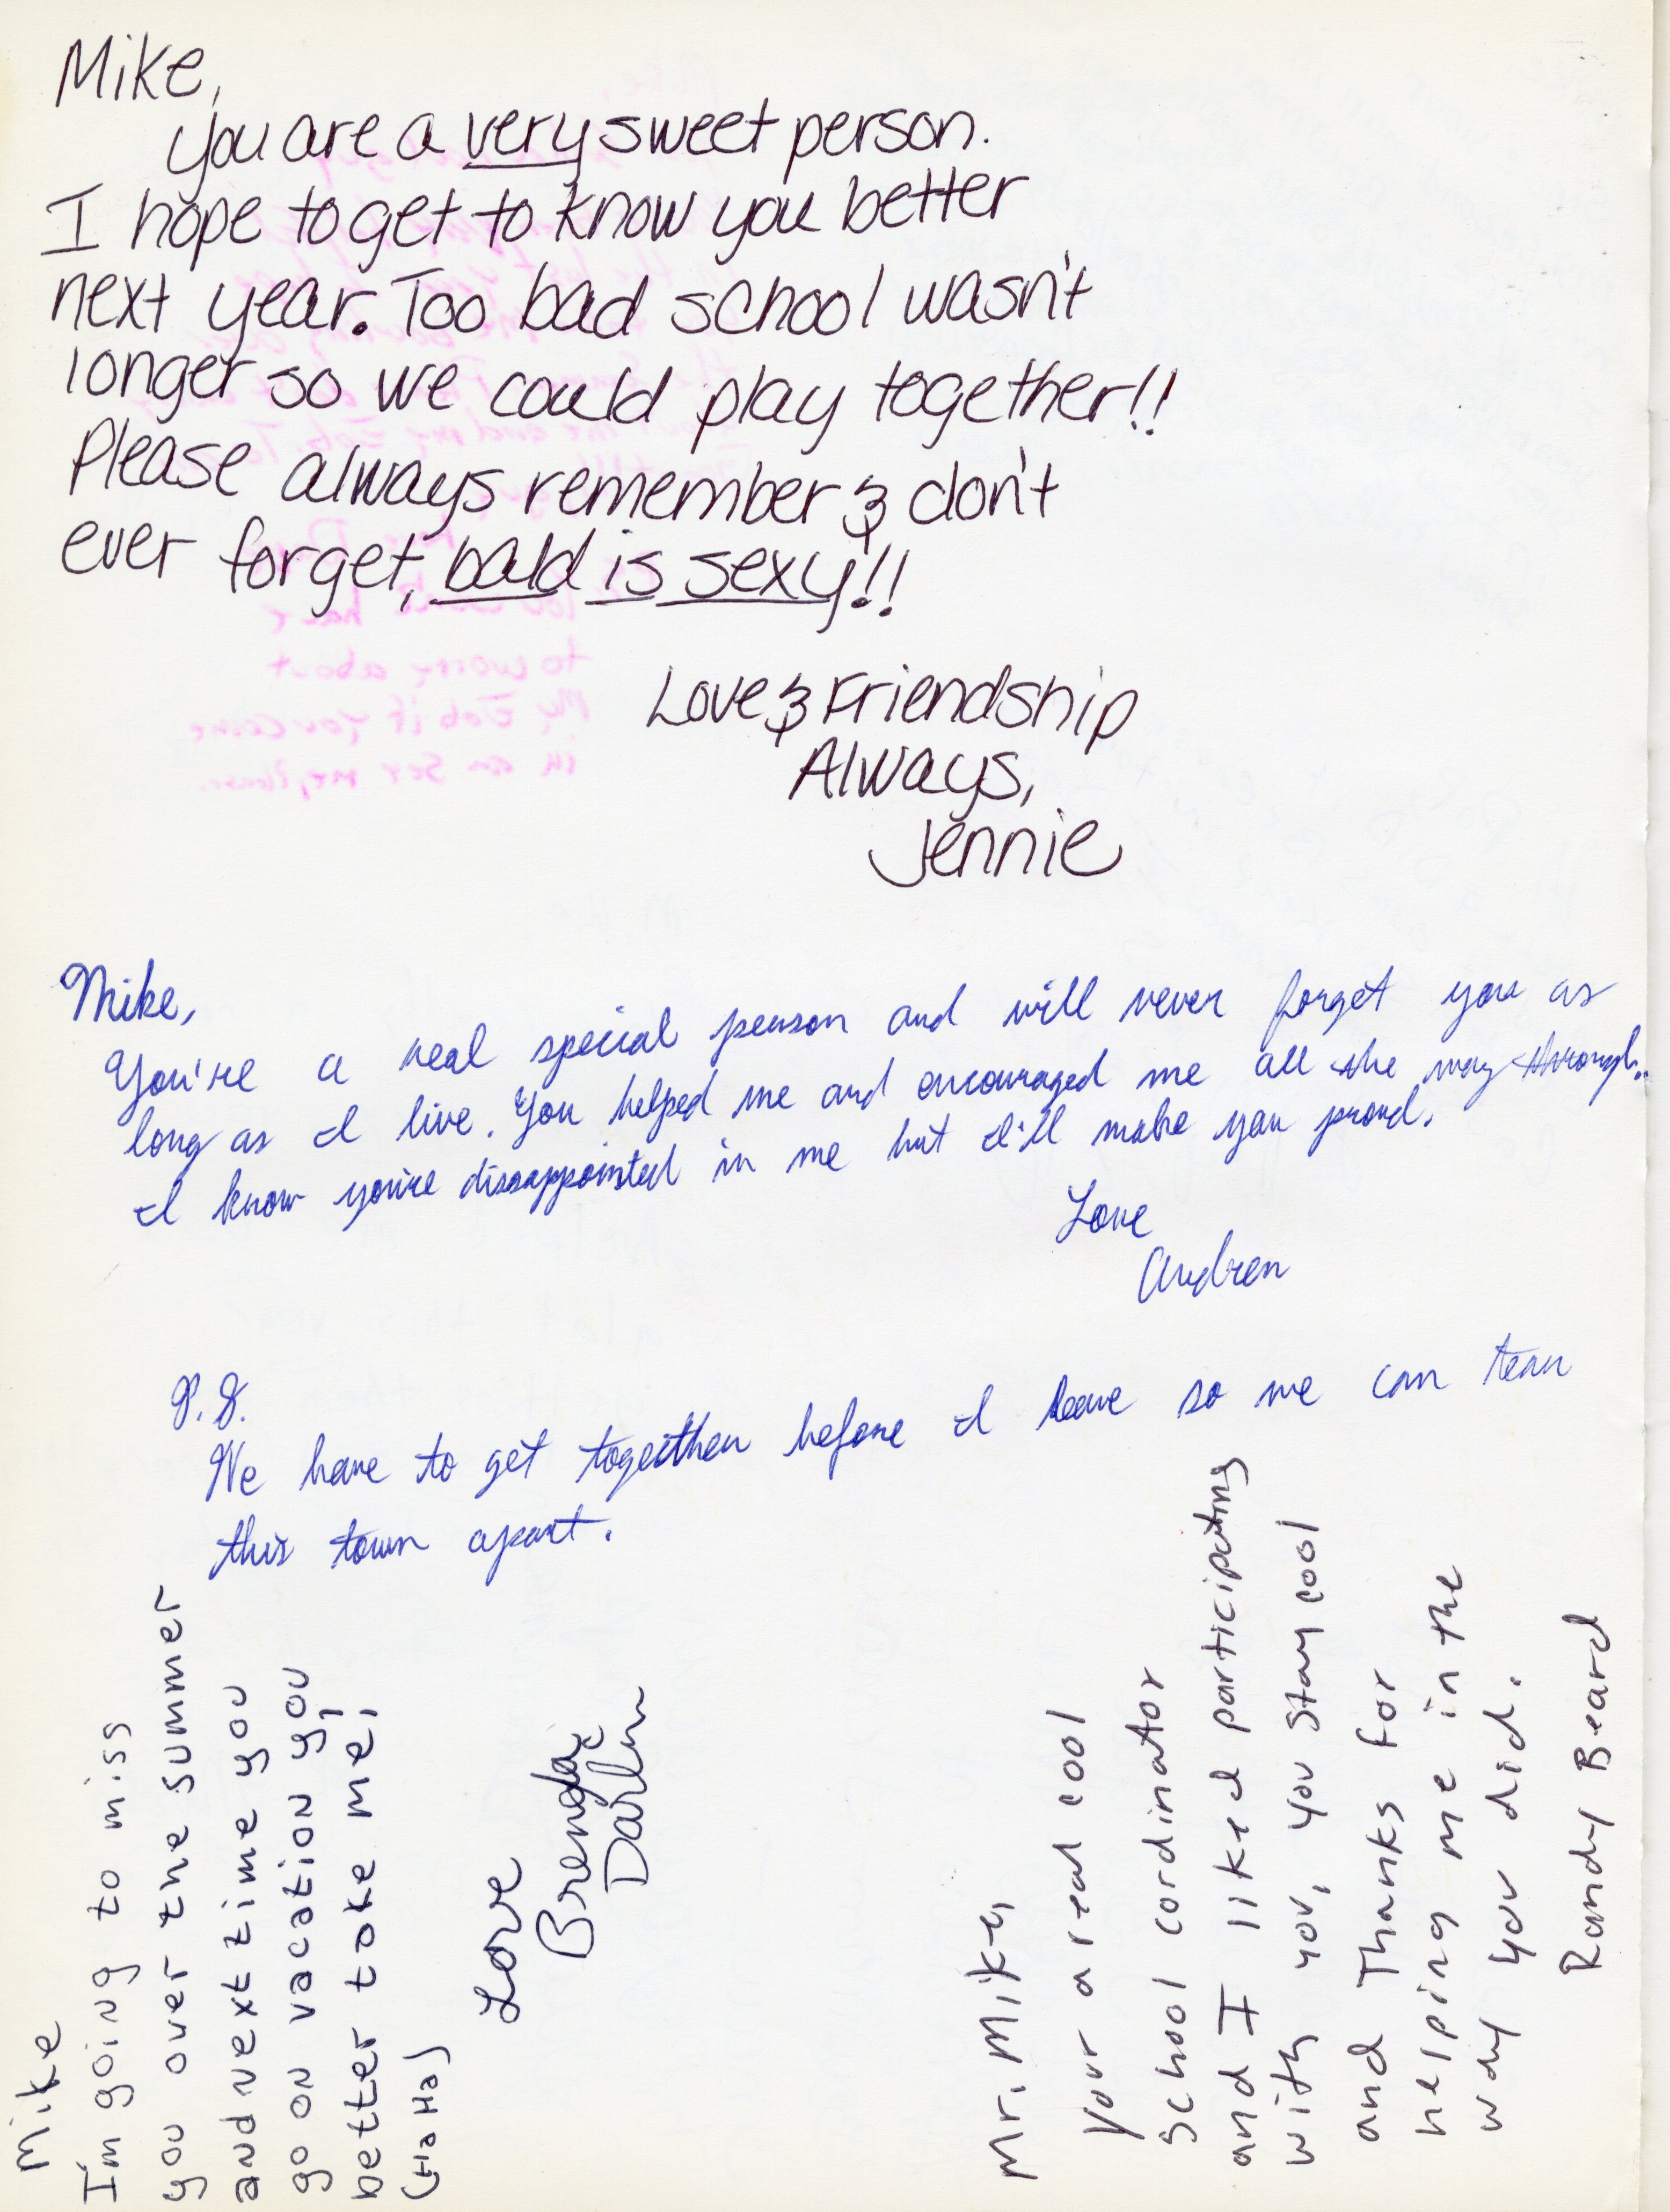 Mike,
you are a very sweet person.
I hope to get to know you better
next year. Too bad school wasn't
longer so we could play together!!
Please always remember & don't
ever forget, bald is sexy!!
Love & Friendship
Always,
Jennie
Mike,
You're a real special person and will never forget you as
long as I live. You helped me and encouraged me all the way through.
I know you're disappointed in me but I'll make you proud.
Love
P.S.
We have to get together before I leave so we can tear
this town apart.
Mike
I'm going to miss
you over the summer
and next time you
go on vacation you
better take me!
(Ha Ha)
Love
Brenda
Mr. Mike,
your a real cool
School cordinator
and I liked participating
with you, you stay cool
and Thanks for
helping me in the
way you did.
Randy Beard
You wont have
to worry about
My Job if you come